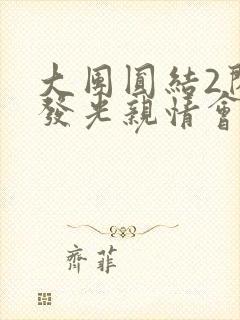 大團圓結2
發光親情會
齊菲